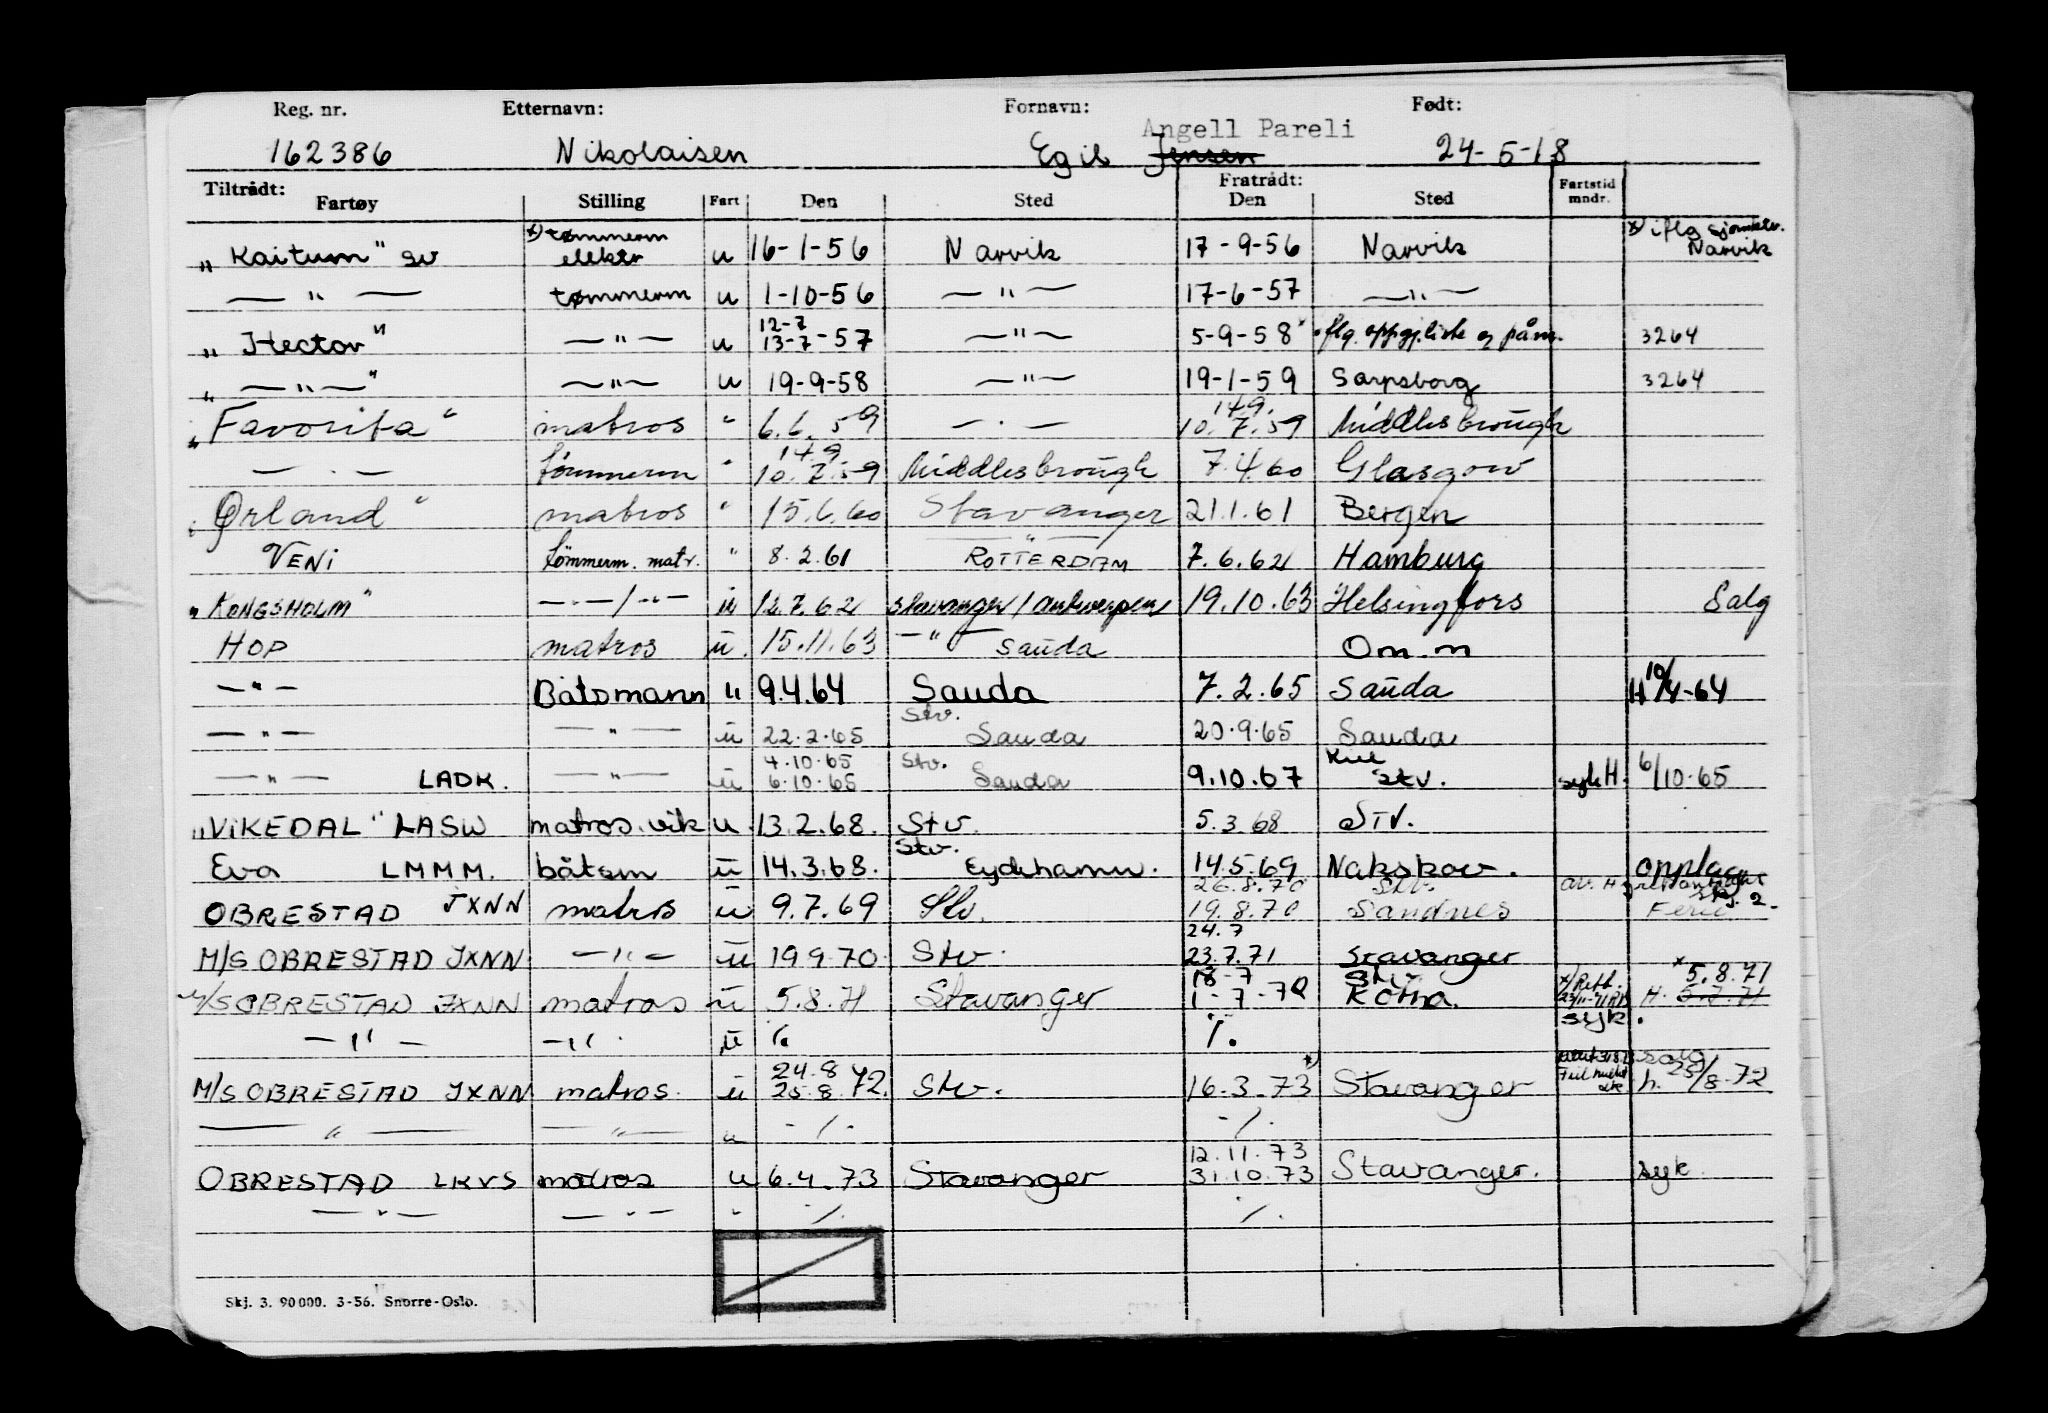 Reg. nr. Etternavn: Fornavn: Født:
Angell Pareli
162386 Nikolaisen Egil Jensen 24-5-18
Tiltrådt: Fratrådt: Fartstid mndr.
Fartøy Stilling Fart Den Sted Den Sted
„Kaitum" sv x) tømmerm elektr u 16-1-56 Narvik 17-9-56 Narvik x) iflg sjømktr. Narvik
— " — tømmerm u 1-10-56 — " — 17-6-57 — " —
„Hector" — " — u 12-7 13-7-57 — " — 5-9-58 flg. oppgj.liste og påm. 3264
„ — " — " — " — u 19-9-58 — " — 19-1-59 Sarpsborg 3264
„Favorita" matros " 6.6.59 — " — 14.9. 10.7.59 Middlesbrough
— " — tømmerm " 14.9. 10.7.59 Middlesbrough 7.4.60 Glasgow
„Ørland" matros " 15.6.60 Stavanger 21.1.61 Bergen
VENI tømmerm. matr. " 8.2.61 — " — ROTTERDAM 7.6.62 Hamburg
„KONGSHOLM" — " — / — " — u 12.7.62 Stavanger / Antwerpen 19.10.63 Helsingfors Salg
HOP matros u. 15.11.63 — " — Sauda Om.m
— " — Båtsmann " 9.4.64 Sauda 7.2.65 Sauda H 10/4-64
— " — — " — u 22.2.65 Stv. Sauda 20.9.65 Sauda
— " — LADK. — " — u 4.10.65 6.10.65 Stv. Sauda 9.10.67 Kiel Stv. syk H. 6/10-65
„VIKEDAL" LASW matros.vik u. 13.2.68. Stv. 5.3.68 STV.
Eva LMMM. båtsm u 14.3.68. Stv. Eydehamn. 14.5.69 Nakskov. Opplag
OBRESTAD JXNN matros u 9.7.69 Stv. 26.8.70 19.8.70 Stv. Sandnes av. H Ferie
M/S OBRESTAD JXNN — " — u 19.9.70 Stv. 24.7 23.7.71 Stavanger
M/S OBRESTAD JXNN matros u 5.8.71 Stavanger 18-7 1-7-72 Stv. Kotka. x) x 5.8.71 H.
— " — — " — u ·/. ·/. syk.
M/S OBRESTAD JXNN matros. u 24.8 25.8.72. Stv. 16.3.73 x) Stavanger h. 25/8-72
— " — — " — u -/.- -/.
OBRESTAD LKVS matros u 6.4.73 Stavanger 12.11.73 31.10.73 Stavanger. syk.
— " — — " — " ·/. ·/.
Skj. 3. 90 000. 3-56. Snorre-Oslo.